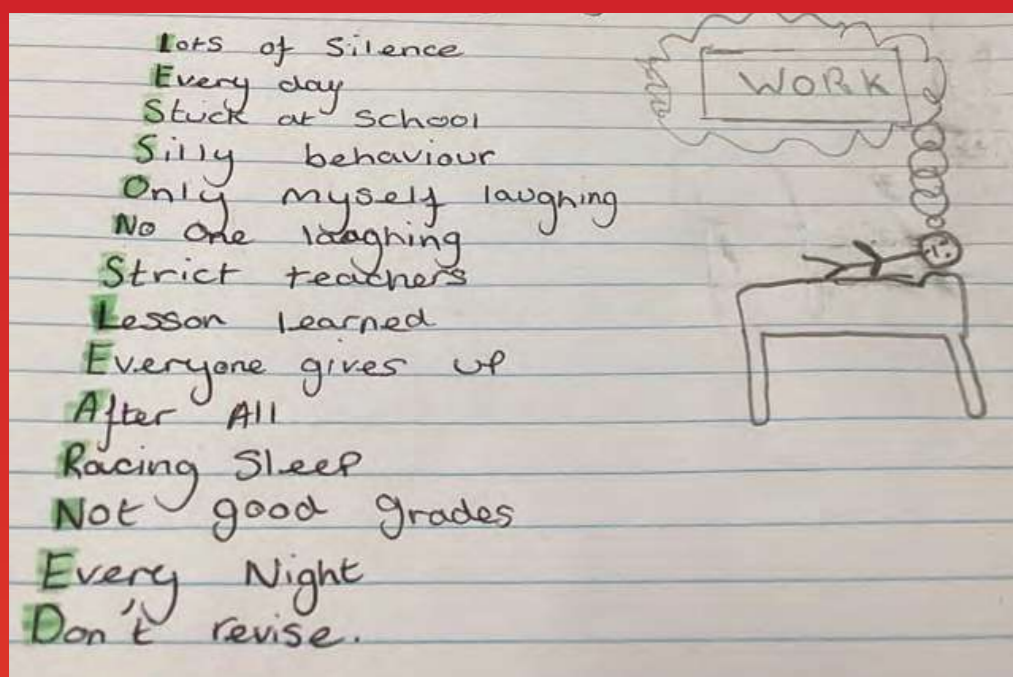 WORK
Lots of Silence
Every day
Stuck at School
Silly behaviour
Only myself laughing
No One laughing
Strict teachers
Lesson learned
Everyone gives up
After All
Racing Sleep
Not good grades
Every Night
Don't revise.